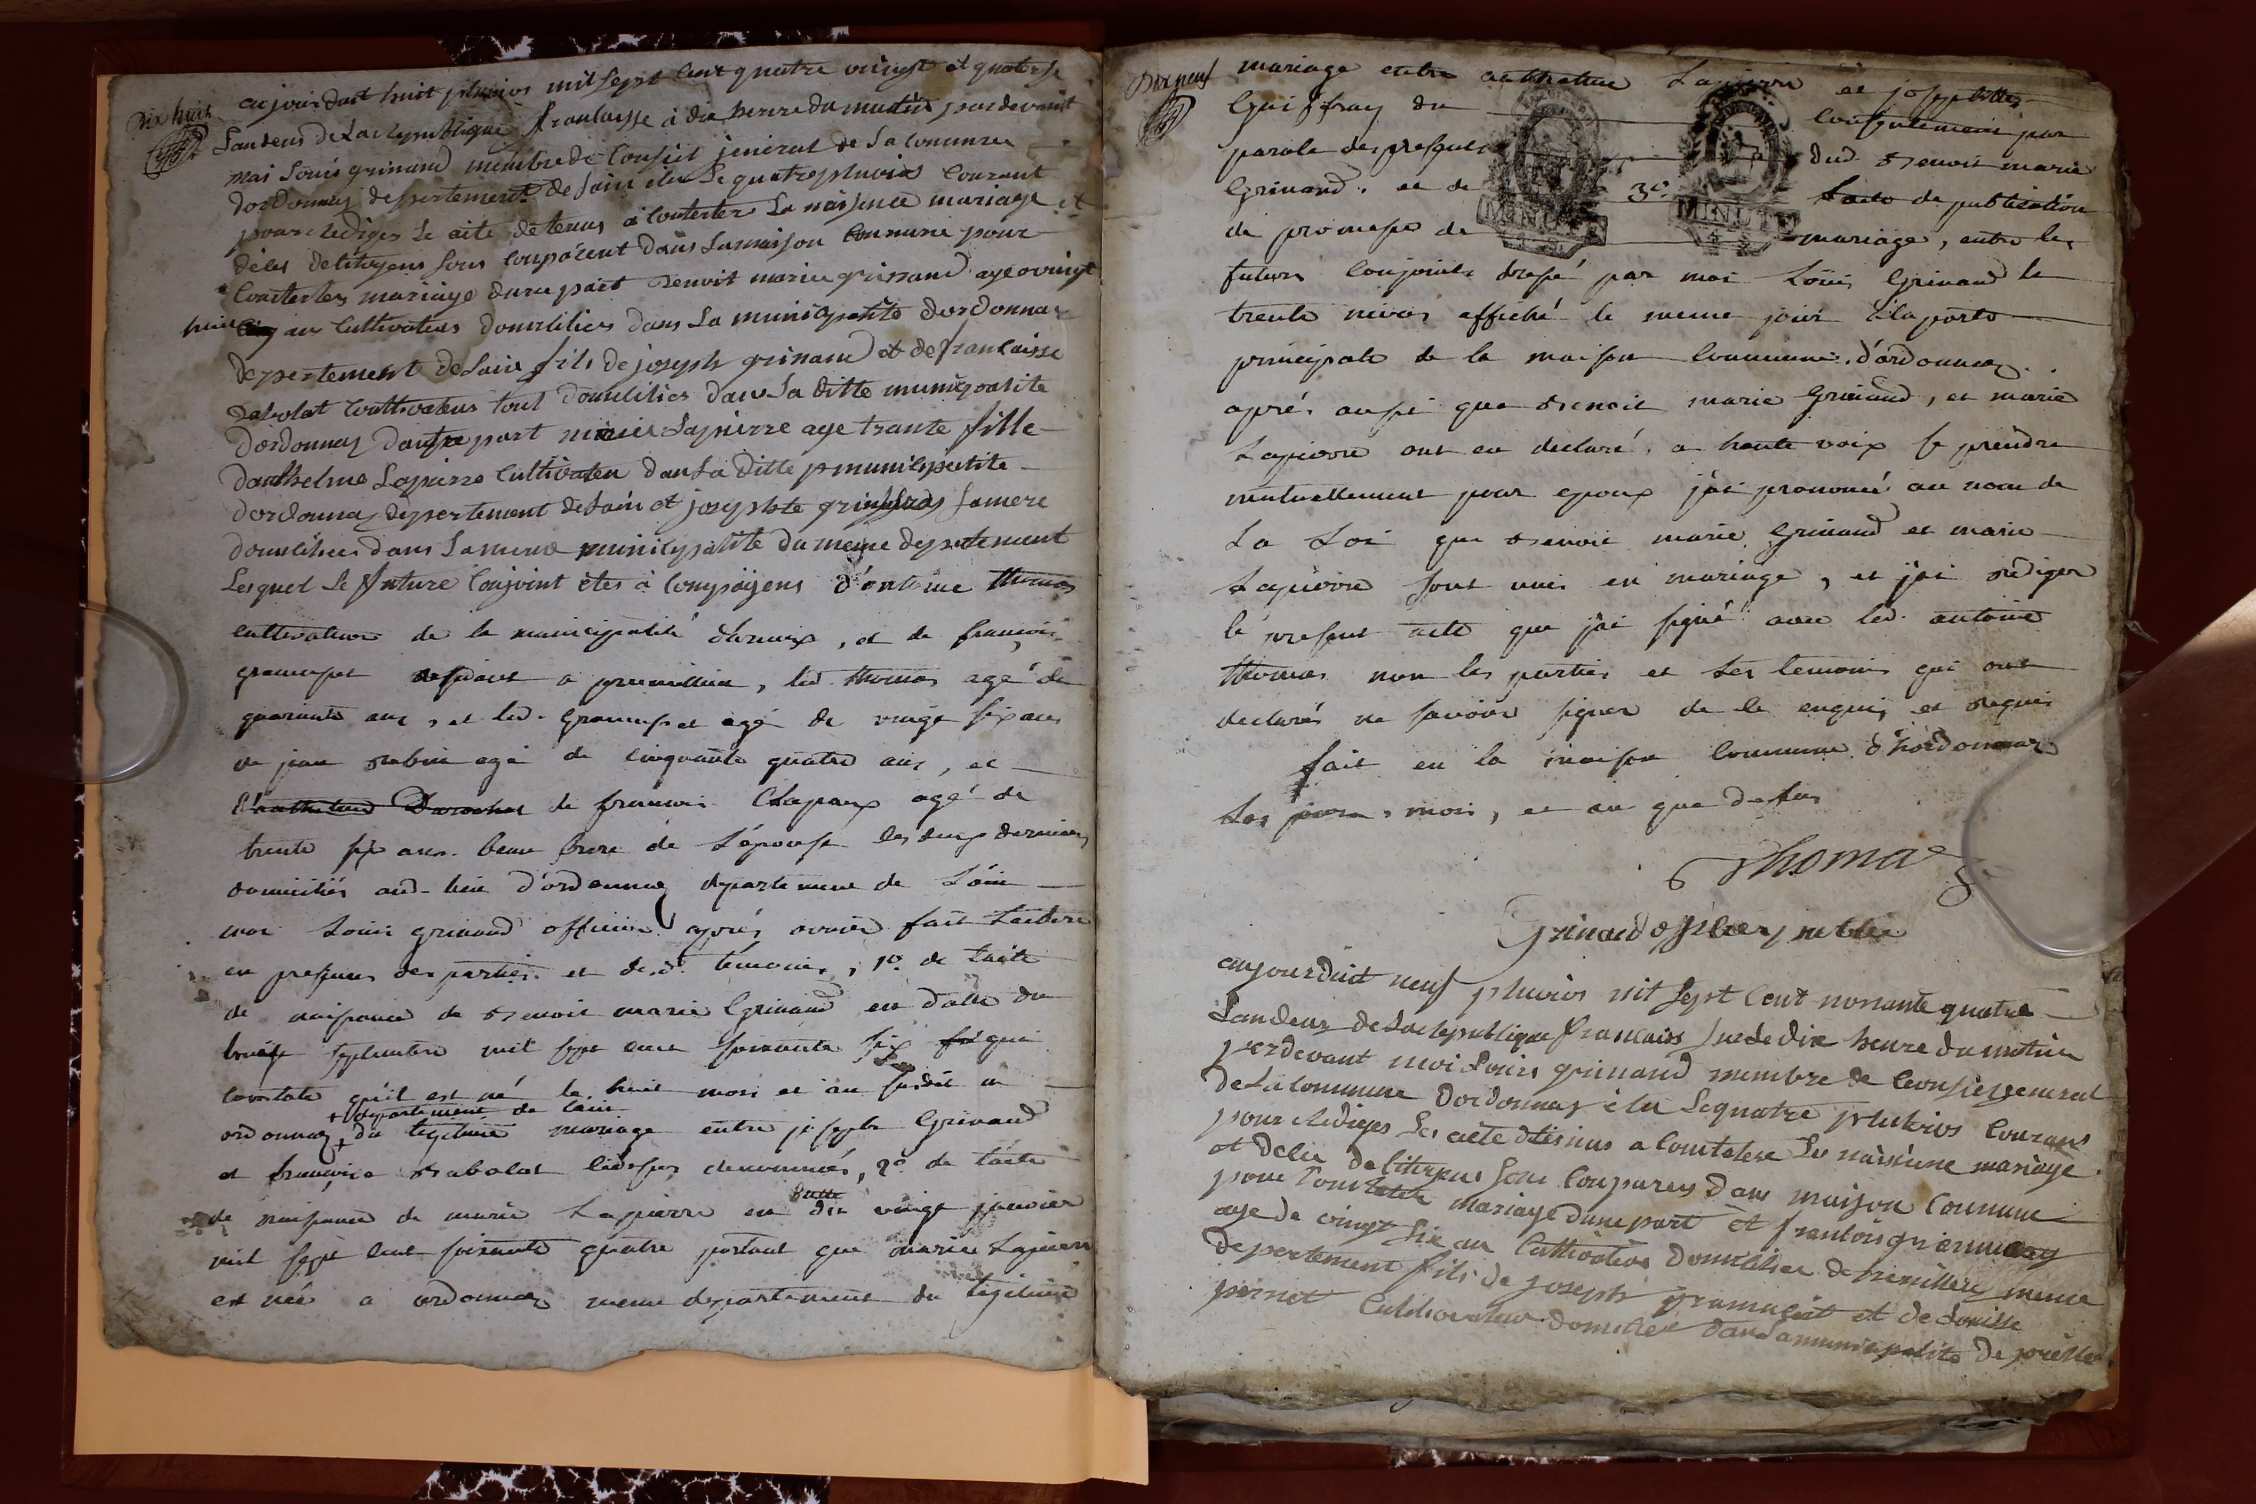 Dix huit
aujourduit huit pluvios mil sept cent quatre vingt et quatorse
Landeus de La republique francaisse à dix heure du matin pardevant
moi Louis grinand membre de Conseil jeneral de la Commune
dordonnaz depertement de Lain elu Le quatre pluvios Courant
pour rediger Le aite detenus à Conterter La naissence mariage et
déces de litoyens sons Conparent dans Lamaison Commune pour
Conterter mariage dune part Benoit marie grinand age vingt
huit an Cultivateus domilities dans La municipalité dordonnaz
depertement de Lain fils de joseph grinand et de francaisse
Rabolat Coultivateus tout domilities dans La ditte municipalite
dordonnaz dautre part marie Lapierre age trante fille
danthelme Lapierre Cultivateu dans La ditte municipalite
dordonnaz depertement de Lain et josephte Samere
domilities dans La meme municipalité du meme depertement
Lesquel Le futture Conjoint étes à Conpagens d'antoine thomas
cultivateur de la municipalité , et de françois
a premillieu, led. thomas agé de
quarante ans, et led. agé de vingt six ans
de jean Rabin agé de cinquante quatre ans, et
de francois Chapaux agé de
trente six ans. beau frere de L'épouse les deux derniers
domiciliés aud. lieu d'ordonnaz departement de L'ain
moi Louis grinand officier aprés avoir fait Lecture
en presence des parties et desd. temoins, 1º. de l'acte
de naissance de Benoit marie Grinand en datte du
septembre mil sept cent soixante six qui
constate qu'il est né le huit mois et an susdit a
+ departement de Lain
ordonnaz + du légitime mariage entre joseph Grinand
et françoise Rabolat denommés, 2º. de l'acte
de naissance de marie Lapierre en datte du vingt janvier
mil sept cent soixante quatre portant que marie Lapierre
est née a ordonnaz meme departement du légitime
Dix neuf
mariage entre anthelme Lapierre et josephte
Guiffray du Consentement par
parole de presque dud Benoit marie
Grinand. et de 3º. Lacte de publication
de promesse de mariage, entre les
futurs Conjoints dressé par moi Loüis Grinand le
trente nivos affiché le meme jour à la porte
principale de la maison Commune d'ordonnaz.
aprés aussi que Benoit marie Grinand, et marie
Lapierre ont eu declaré a haute voix se prendre
mutuellement pour epoux j'ai prononcé au nom de
La Loi que Benoit marie Grinand et marie
Lapierre sont unis en mariage, et j'ai rediger
le present acte que j'ai signé avec led. antoine
thomas non les parties et les temoins qui ont
declarés ne savoir signer de ce enquis et requis
fait en la maison Commune d'hordonnaz
Les jour, mois, et an que dessus
Thomas
Grinand officier publie
aujourduit neuf pluvios mil sept cent nonante quatre
Landeus de La republique francaiss sur le dix heure du matin
perdevant moi Louis grinand membre de Conseil jeneral
de La Commune dordonnaz élu Le quatre pluvios Courans
pour rediges Les aéte détenus a Contatere Les naissance mariage
et delie de litoyens sons Conparens dans maison Commune
pour Contatere mariage dune part et francois
age de vingt six an Cultivateus domilities de premillieu meme
depertement fils de joseph et de Louisse
pernot Cultivateur domilies dans La municipalite de